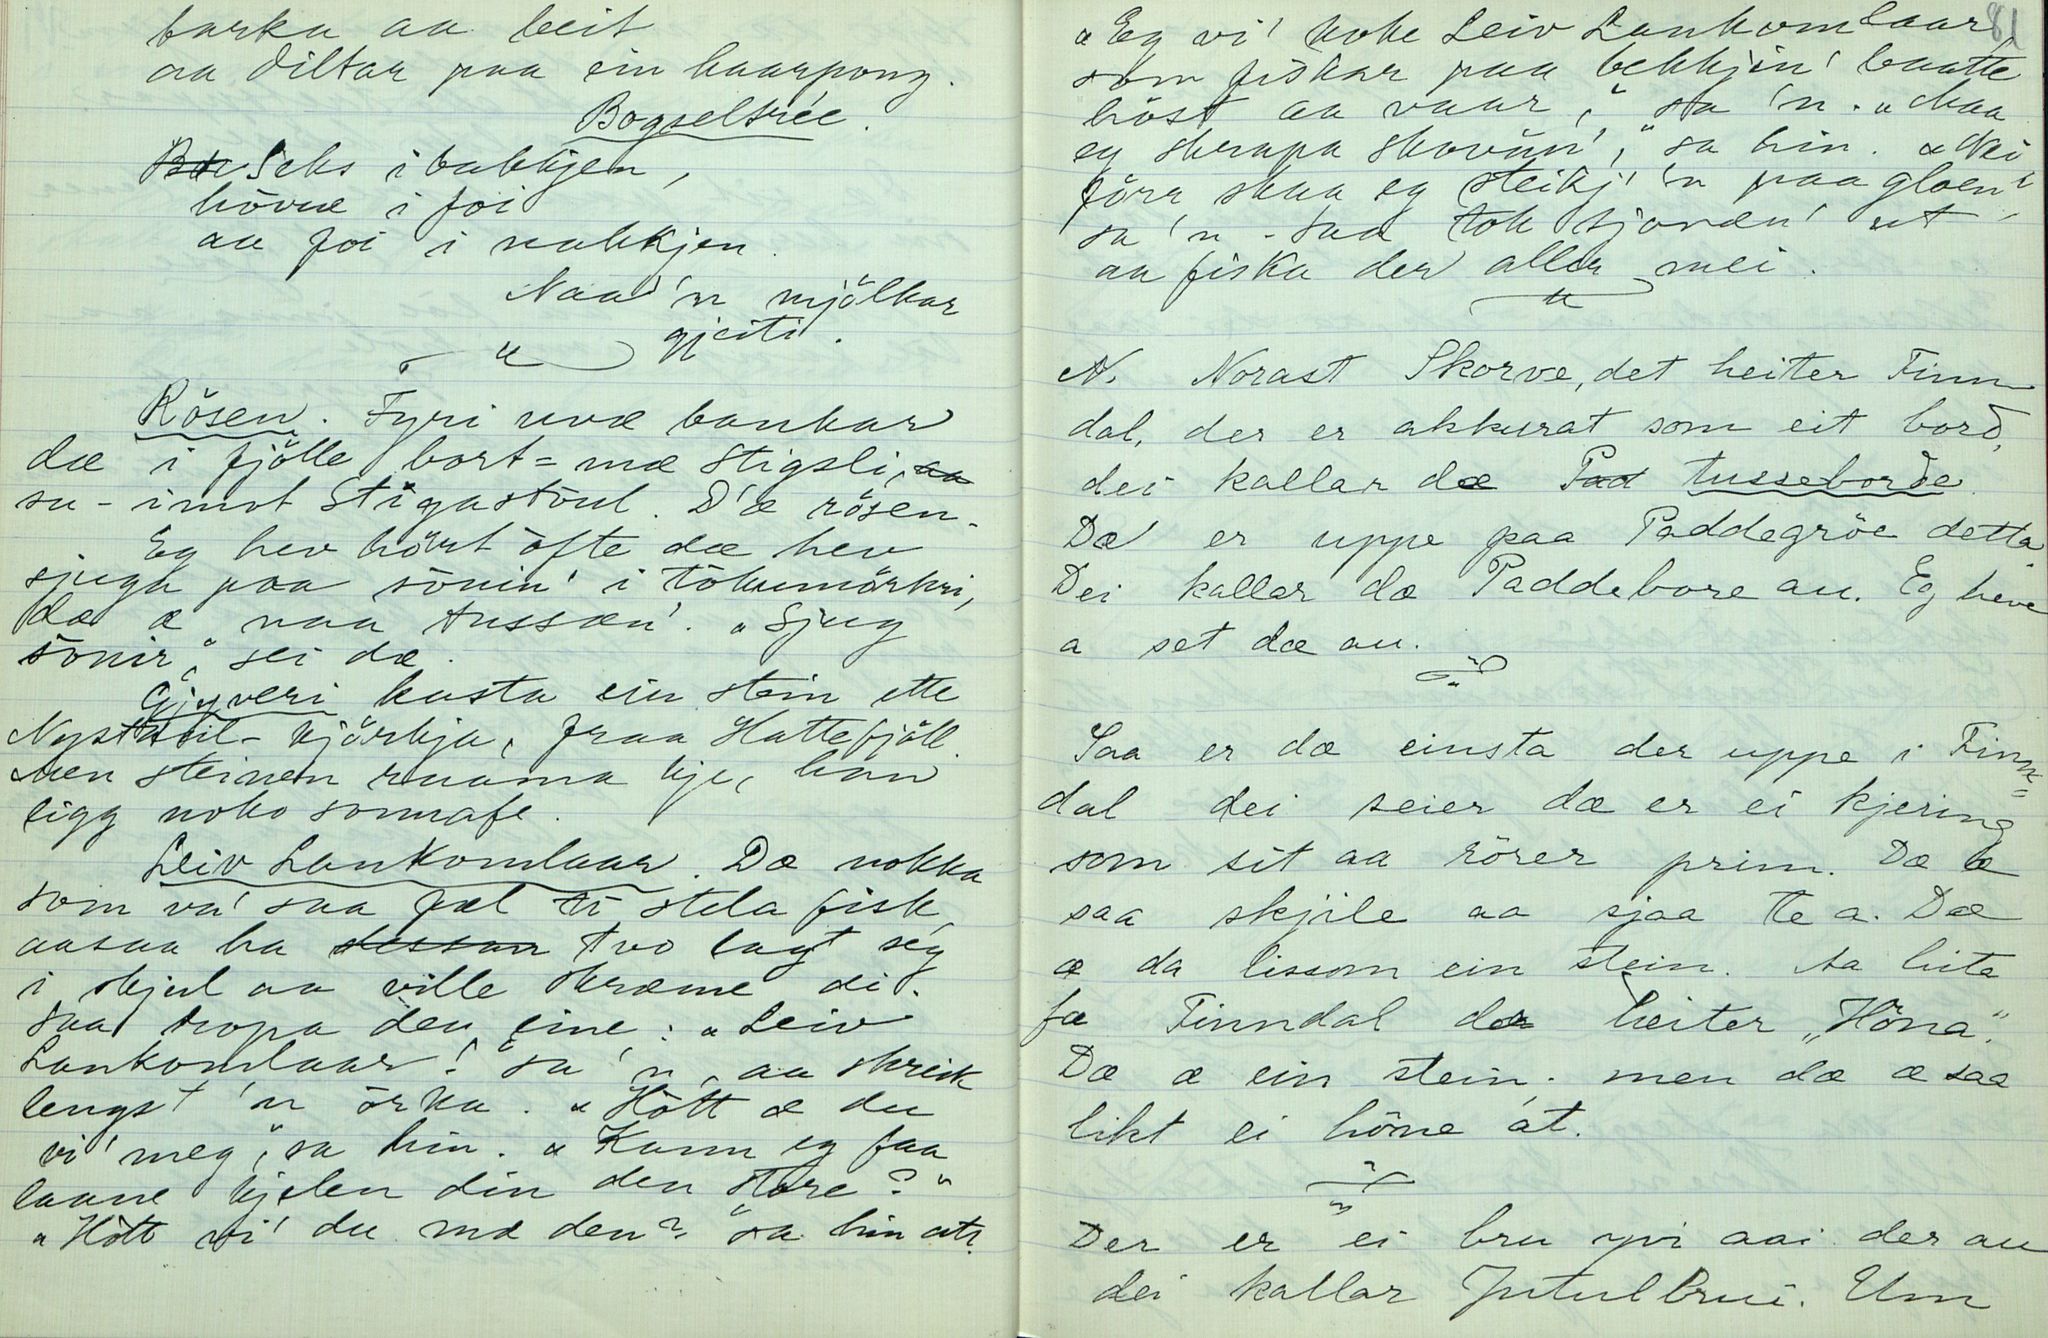 barka aa beit
aa diltar paa ein haarpong.
Bogseltrée.
Seks i bakkjen,
hövue i foi
aa foi i nakkjen.
Naa 'n mjölkar
gjeiti.
Rösen. Fyri uvæ bankar
dæ i fjölle bort = mæ Stigsli, aa
su - imot Stigastöul. D'æ rösen.
Eg hev hört öfte dæ hev
sjuga paa sönin' i tökumörkri,
dæ æ naa tussæn'. "Sjug
sönir," sei dæ.
Gjyveri kasta ein stein ette
Nystaul - kjörkja, fraa Hattefjöll.
Men steinen runma kje, han
ligg noko sonnafe.
Leiv Lankomlaar. Dæ nokka
som va' saa fæl ti stela fisk,
aasaa ha tvo lagt seg
i skjul aa ville skræme di.
Saa ropa den eine: "Leiv
Lankomlaar!" sa 'n, aa skreik
lengst 'n örka. "Hött æ du
vi' meg," sa hin. "Kann eg faa
laane kjelen din den store?"
"Hött vi' du mæ den?" sa hin att.
81
"Eg vi' koke Leiv Lankomlaar,
som fiskar paa bekkjin' baatte
höst aa vaar," sa 'n. "Maa
eg skrapa skovun'," sa hin. "Nei
förr skaa eg steikj' 'n paa gloen'"
sa 'n - Saa tok tjoven' ut
aa fiska der aller mei.
N. Norast Skorve, det heiter Finn
dal, der er akkurat som eit bord,
dei kallar dæ Pad tusseborde.
Dæ er uppe paa Paddegröe detta.
Dei kallar dæ Paddebore au. Eg heve
a set dæ au.
Saa er dæ einsta der uppe i Finn=
dal dei seier dæ er ei kjering
som sit aa rörer prim. Dæ æ
saa skjile aa sjaa te a. Dæ
æ da lissom ein stein. Aa lita
fæ Finndal dær heiter "Höna".
Dæ æ ein stein, men dæ æ saa
likt ei höne át.
Der er ei bru yvi aai der au
dei kallar Jutulbrui. Um